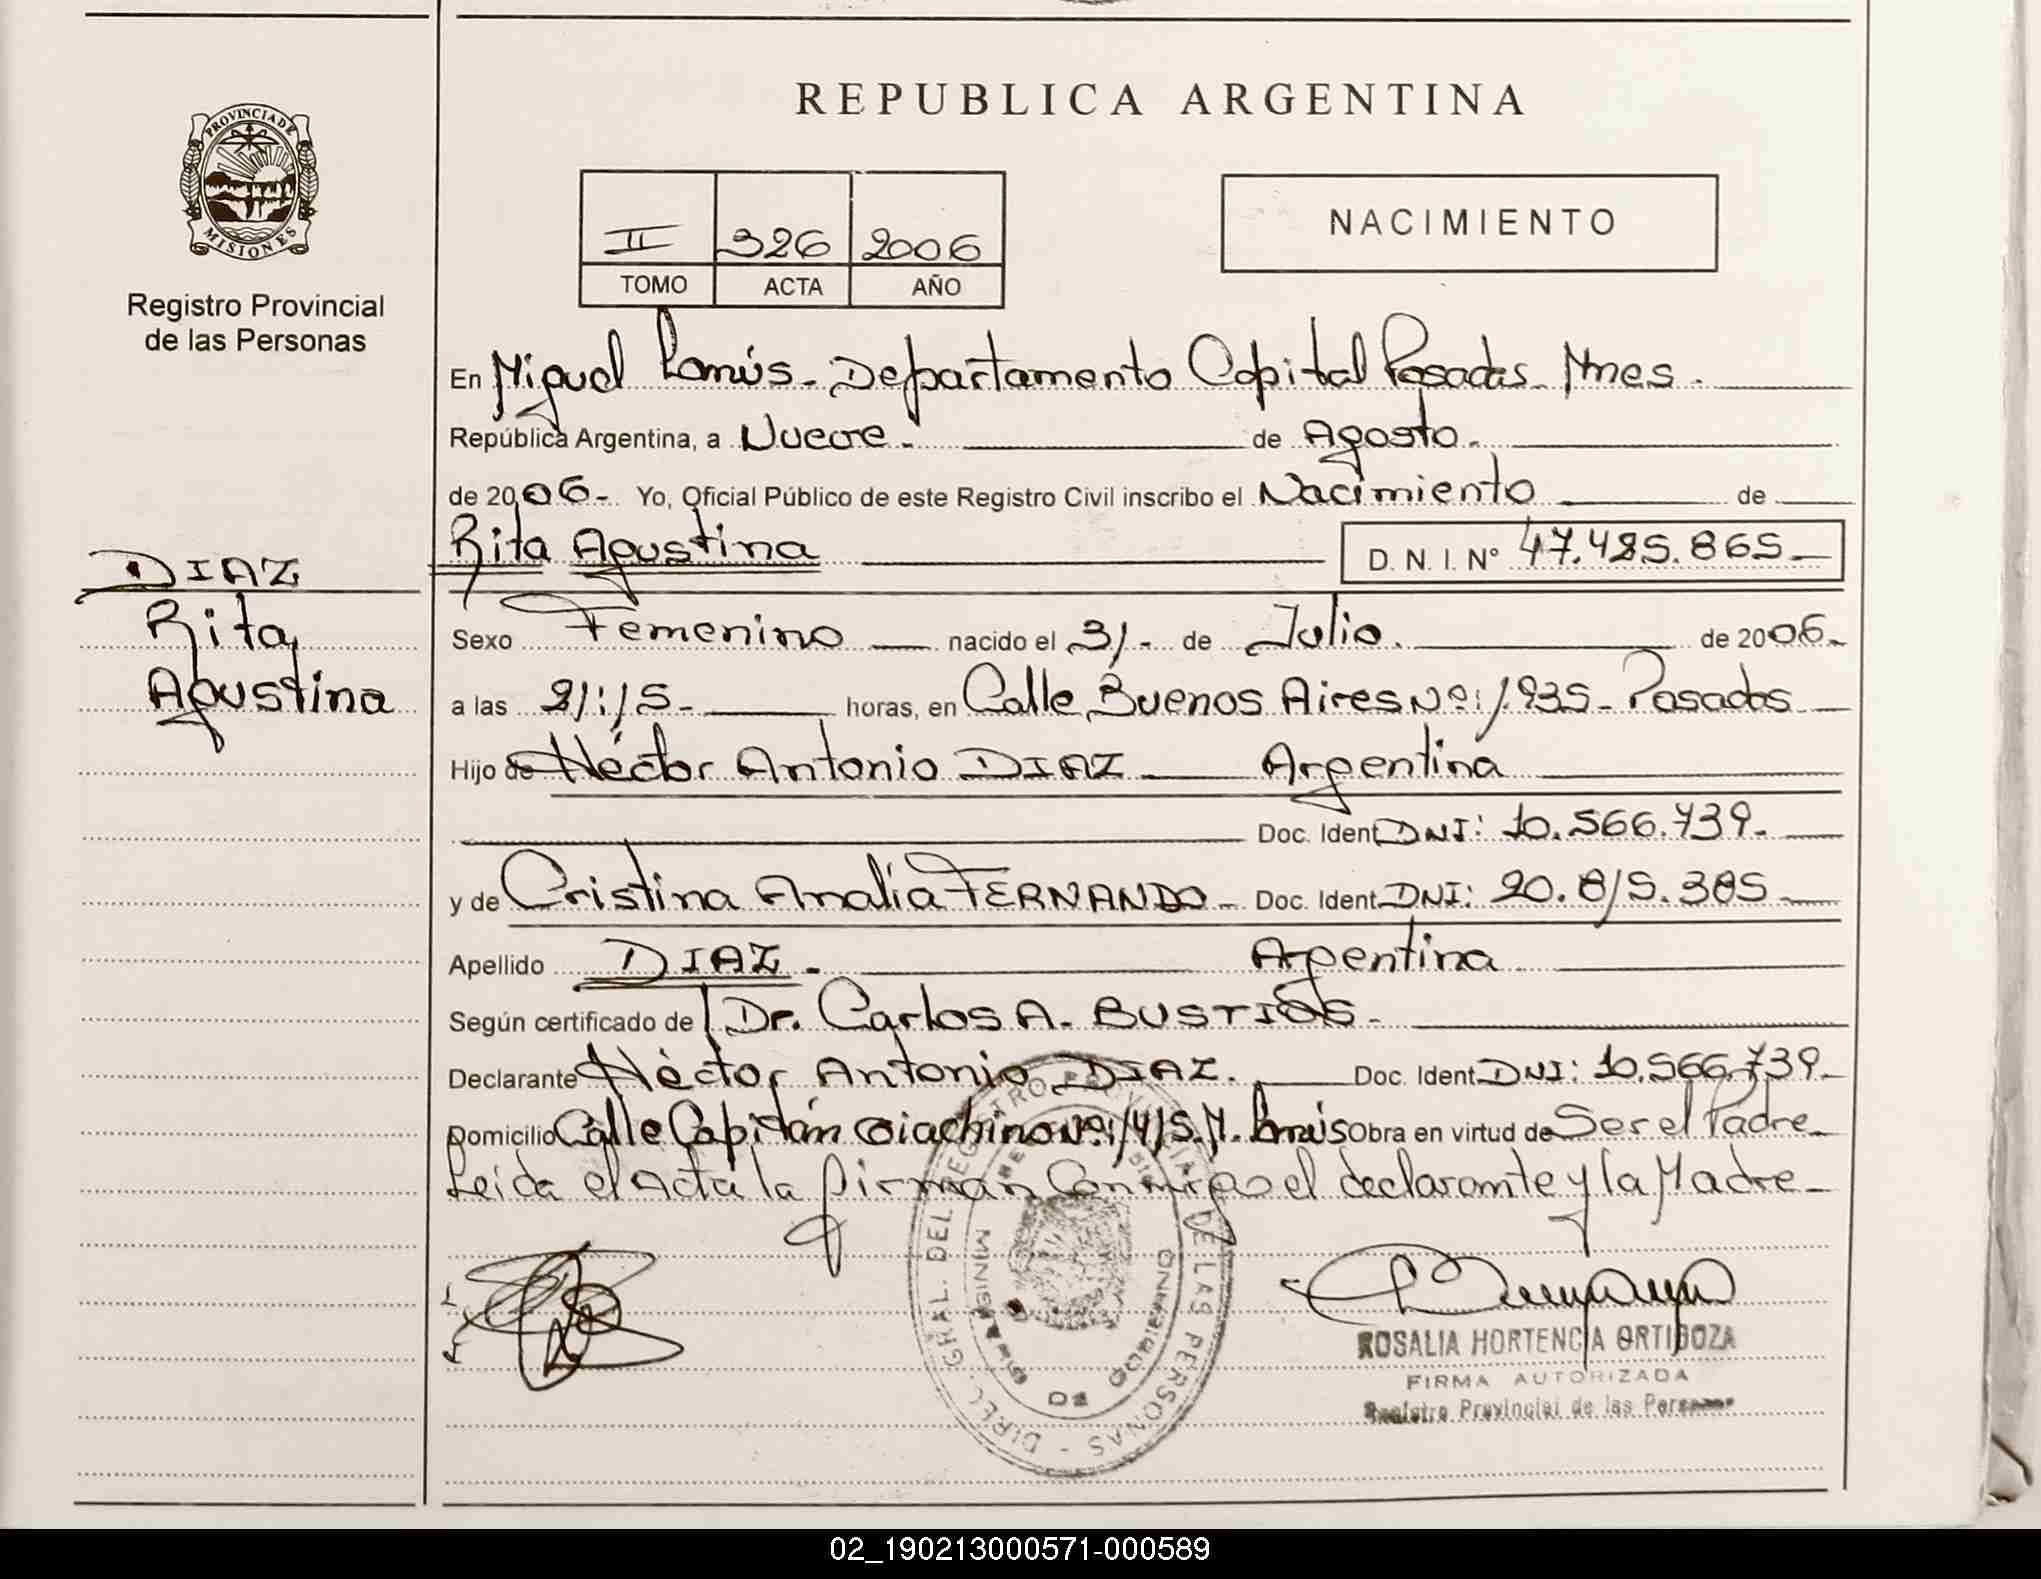 REPUBLICA ARGENTINA
PROVINCIA DE
MISIONES
Registro Provincial
de las Personas
II 326 2006
TOMO ACTA AÑO
NACIMIENTO
En Miguel Lanús - Departamento Capital Posadas Mnes.
República Argentina, a Nueve. de Agosto.
de 2006 - Yo, Oficial Público de este Registro Civil inscribo el Nacimiento de
Rita Agustina D. N. I. Nº 47.485.865
DIAZ
Rita
Agustina
Sexo Femenino nacido el 31 - de Julio. de 2006.
a las 21:15 - horas, en Calle Buenos Aires Nº: 1.935 - Posadas
Hijo de Héctor Antonio DIAZ Argentina
Doc. Ident DNI: 10.566.739.
y de Cristina Analía FERNANDO - Doc. Ident DNI: 20.815.385
Apellido DIAZ - Argentina
Según certificado de Dr. Carlos A. BUSTIOS -
Declarante Héctor Antonio DIAZ. Doc. Ident DNI: 10.566.739.
Domicilio Calle Capitán Giachino Nº: 1415. M. Lanús Obra en virtud de Ser el Padre
Leida el Acta la firman Conmigo el declarante y la Madre -
DIREC. GRAL. DEL REGISTRO DE LAS PERSONAS
ROSALIA HORTENCIA ORTIGOZA
FIRMA AUTORIZADA
Registro Provincial de las Personas
02_190213000571-000589